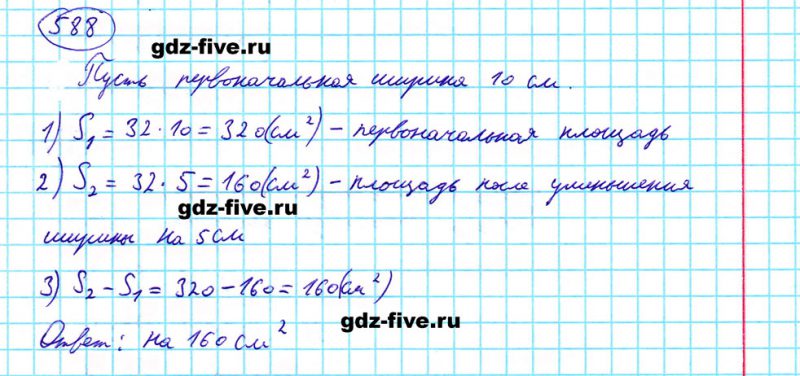 588
gdz-five.ru
Пусть первоначальная ширина 10 см.
1) S₁ = 32 · 10 = 320(см²) – первоначальная площадь
2) S₂ = 32 · 5 = 160(см²) – площадь после уменьшения
gdz-five.ru
ширины на 5 см
3) S₂ – S₁ = 320 – 160 = 160(см²)
gdz-five.ru
Ответ: на 160 см²